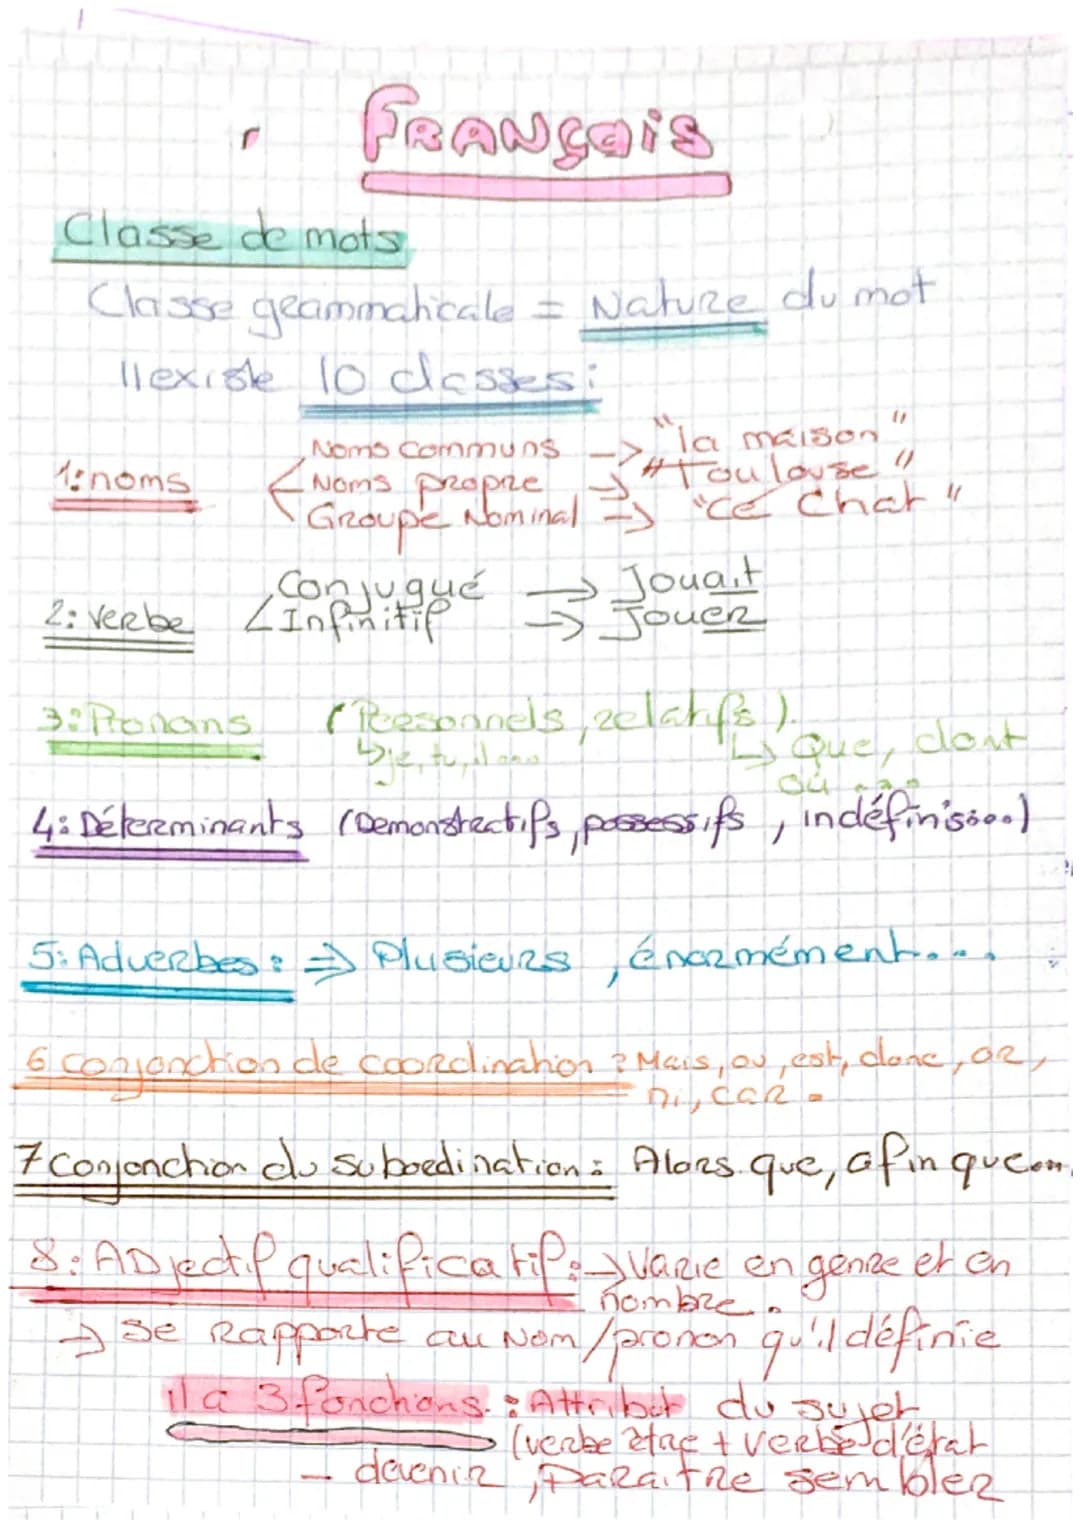 FRANçais
Classe de mots
Classe grammaticale = Nature du mot
Il existe 10 classes:
Noms communs -> "la maison"
1: noms Noms propre -> "Toulouse"
Groupe Nominal -> "Ce Chat"
Conjugué -> Jouait
2: verbe Infinitif -> Jouer
3: Pronoms (Personnels, relatifs).
↳ je, tu, il ... ↳ que, dont
où ...
4: Déterminants (Demonstratifs, possessifs, indéfinis...)
5: Adverbes: => Plusieurs, énormément...
6 conjonction de coordination: Mais, ou, est, donc, or,
ni, car.
7 Conjonction du subordination: Alors que, afin que...
8: ADjectif qualificatif: -> varie en genre et en
nombre.
-> se Rapporte au Nom/pronon qu'il définie
il a 3 fonctions: Attribut du sujet
(verbe être + verbe d'état
- devenir, Paraitre sembler